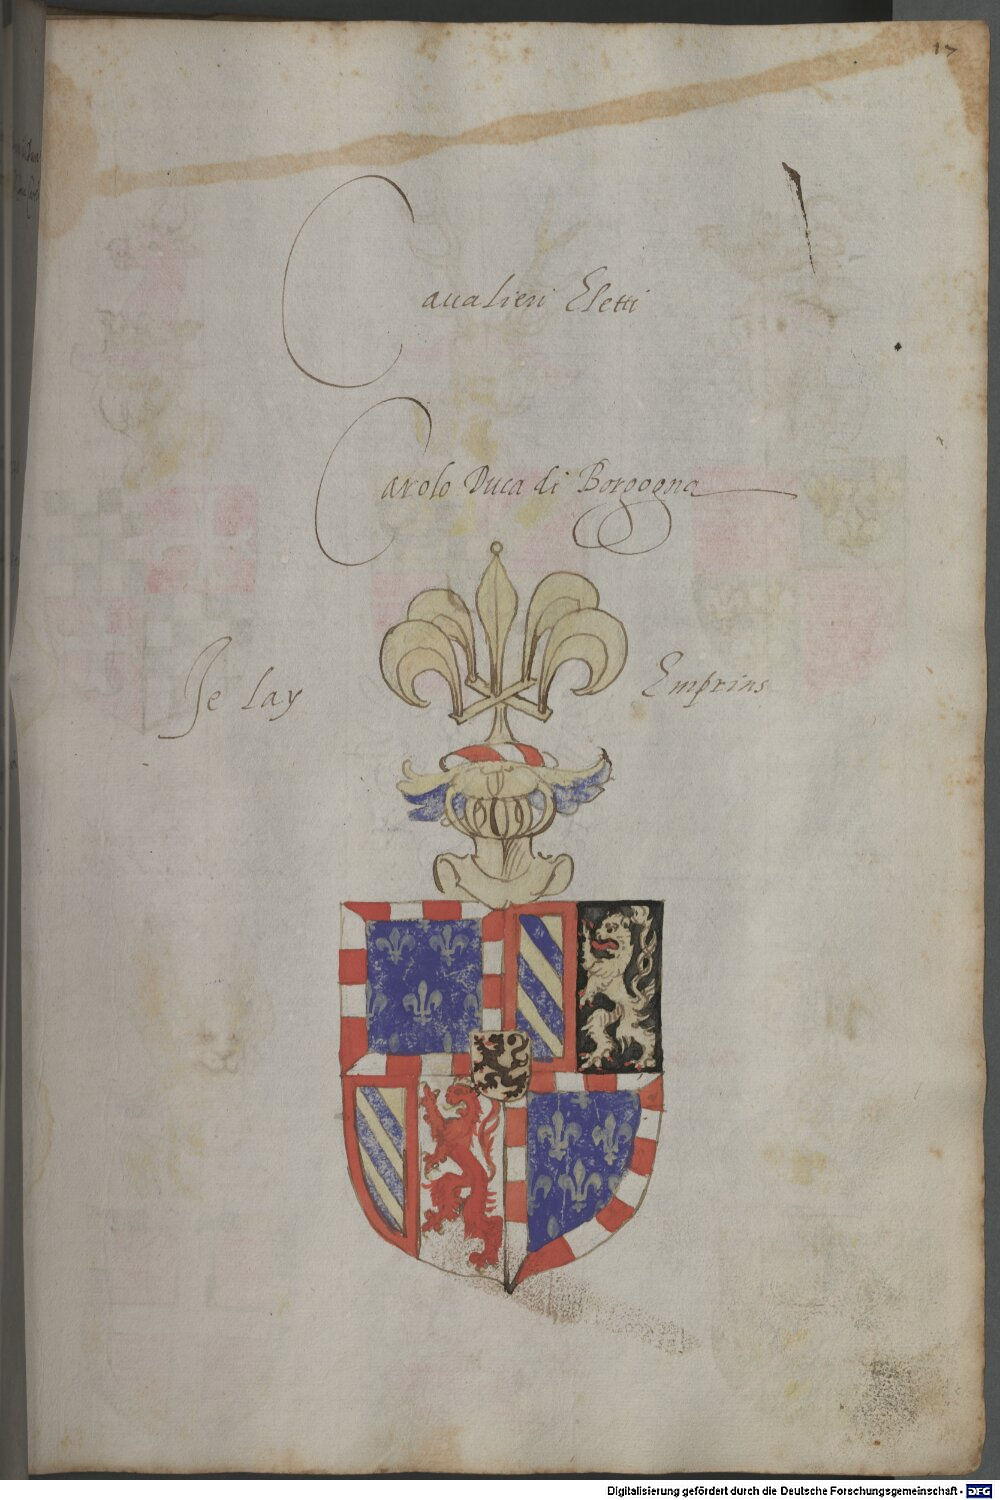 17
Caualieri Eletti
Carolo Duca di Borgogna
Je lay Emprins
Digitalisierung gefördert durch die Deutsche Forschungsgemeinschaft - DFG